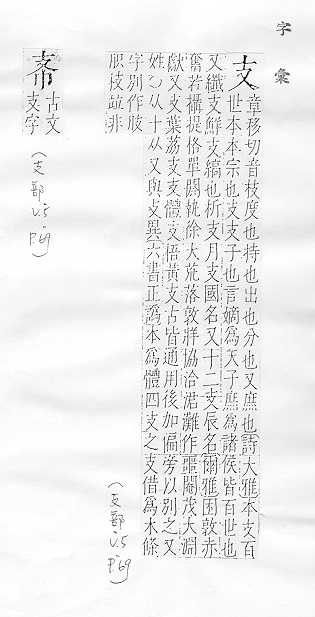 字彙
支 章移切音枝度也持也出也分也又庶也詩大雅本支百
世本本宗也支支子也言嫡為天子庶為諸侯皆百世也
又纖支鮮支縞也析支月支國名又十二支辰名爾雅困敦赤
奮若攝提格單閼執徐大荒落敦牂協洽涒灘作噩閹茂大淵
獻又支葉荔支支體支梧黃支古皆通用後加偏旁以別之又
姓 从十从又與攴異六書正譌本為體四支之支借為木條
字別作肢
胑枝跂非
(支部 V.5 P.69)
𠦙 古文
支字
(支部 V.5 P.69)